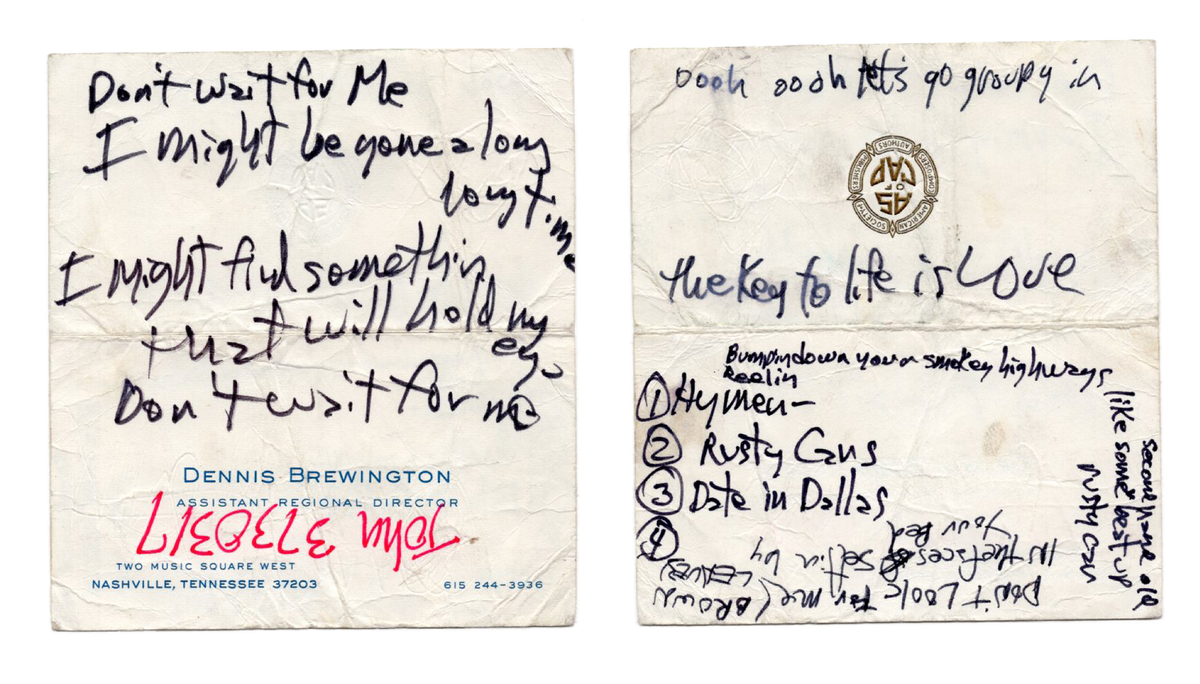 Don't wait for Me
I might be gone a long
long time
I might find somethin
that will hold my
eye
Don't wait for me
DENNIS BREWINGTON
ASSISTANT REGIONAL DIRECTOR
John 3730317
TWO MUSIC SQUARE WEST
NASHVILLE, TENNESSEE 37203
615 244-3936
oooh oooh let's go groupy in
AMERICAN SOCIETY OF COMPOSERS AUTHORS PUBLISHERS
ASCAP
the Key to life is LOVE
Bumpin down your smokey highways
Reelin
① Hymen -
② Rusty Cans
③ Date in Dallas
④
Don't Look for me (BROWN
LEAVES)
IN the faces settin by
Your Bed
like some beat up
rusty can
Second hand old